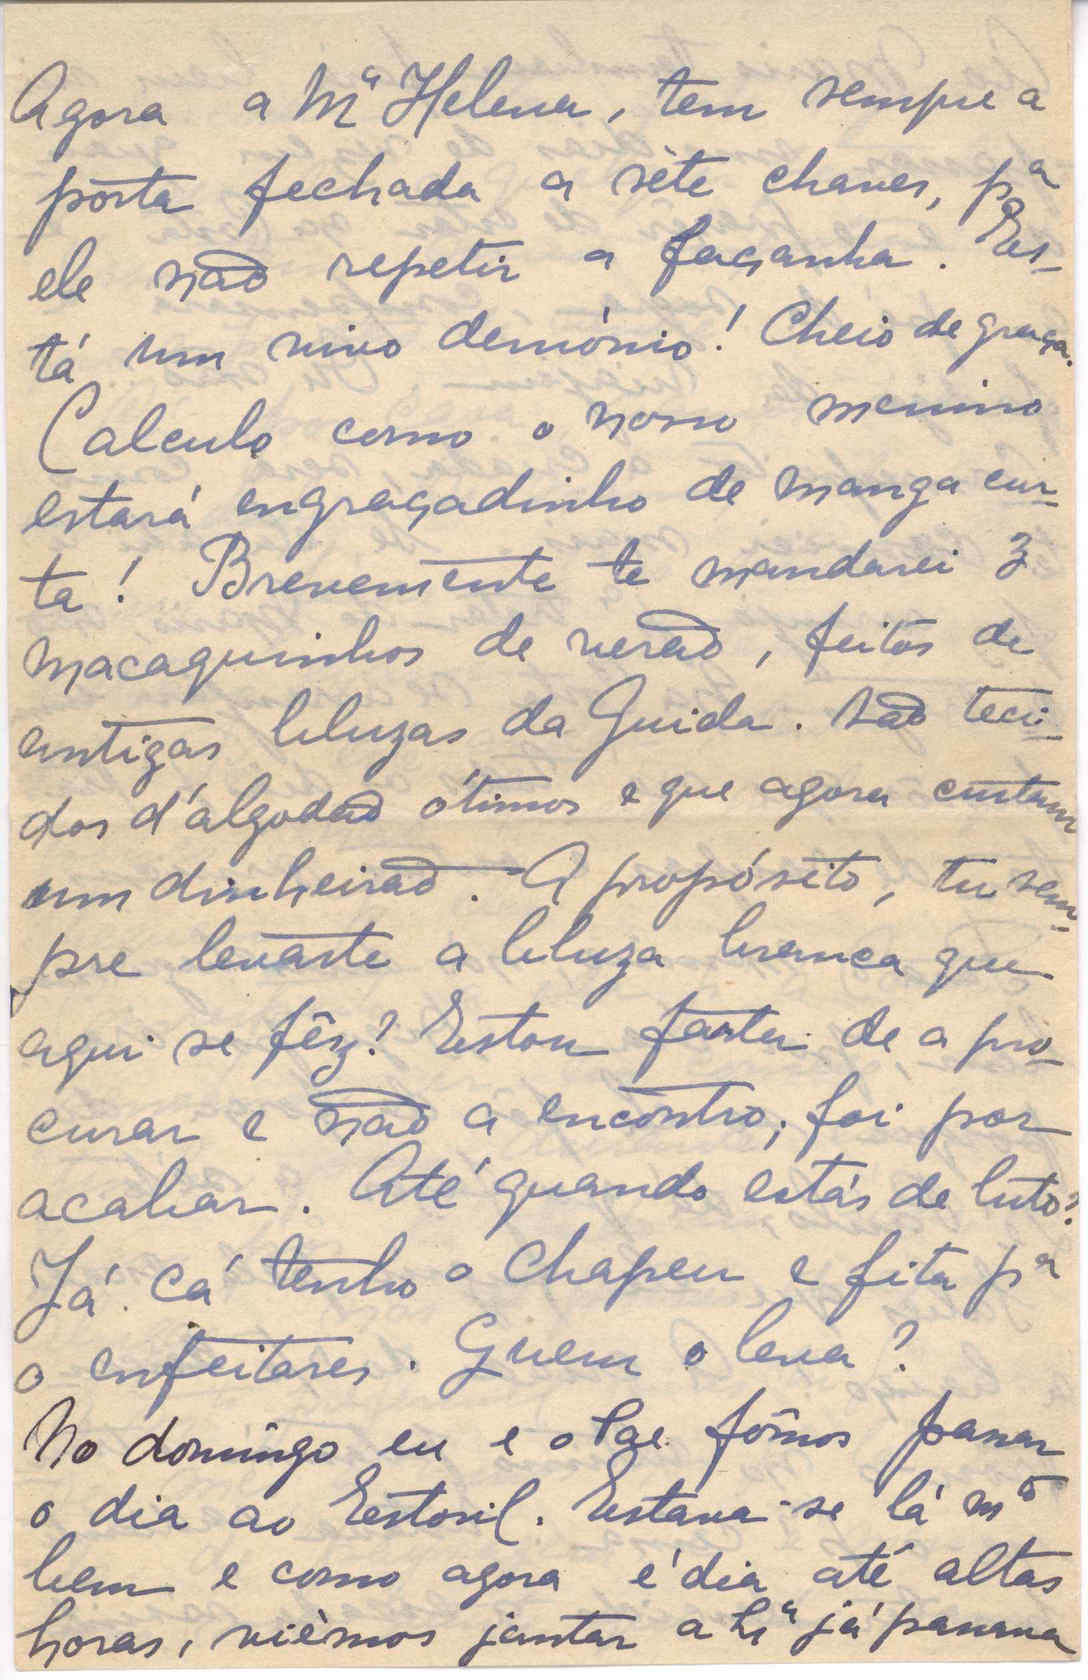 Agora a Mª Helena, tem sempre a
pórta fechada a sète chaves, pª
ele não repetir a façanha. Es-
tá um vivo demónio! Cheio de graça.
Calculo como o nosso menino
estará engraçadinho de manga cur-
ta! Brevemente te mandarei 3
macaquinhos de verão, feitos de
antigas bluzas da Guida. São teci-
dos d'algodão ótimos e que agora custam
um dinheirão. A propósito, tu sem-
pre levaste a bluza branca que
aqui se fêz? Estou farta de a pro-
curar e não a encontro; foi por
acabar. Até quando estás de luto?
Já cá tenho o chapeu e fita pª
o enfeitares. Quem o leva?
No domingo eu e o Pae fômos passar
o dia ao Estoril. Estava-se lá mº
bem e como agora é dia até altas
horas, vièmos jantar a Lxª já passava